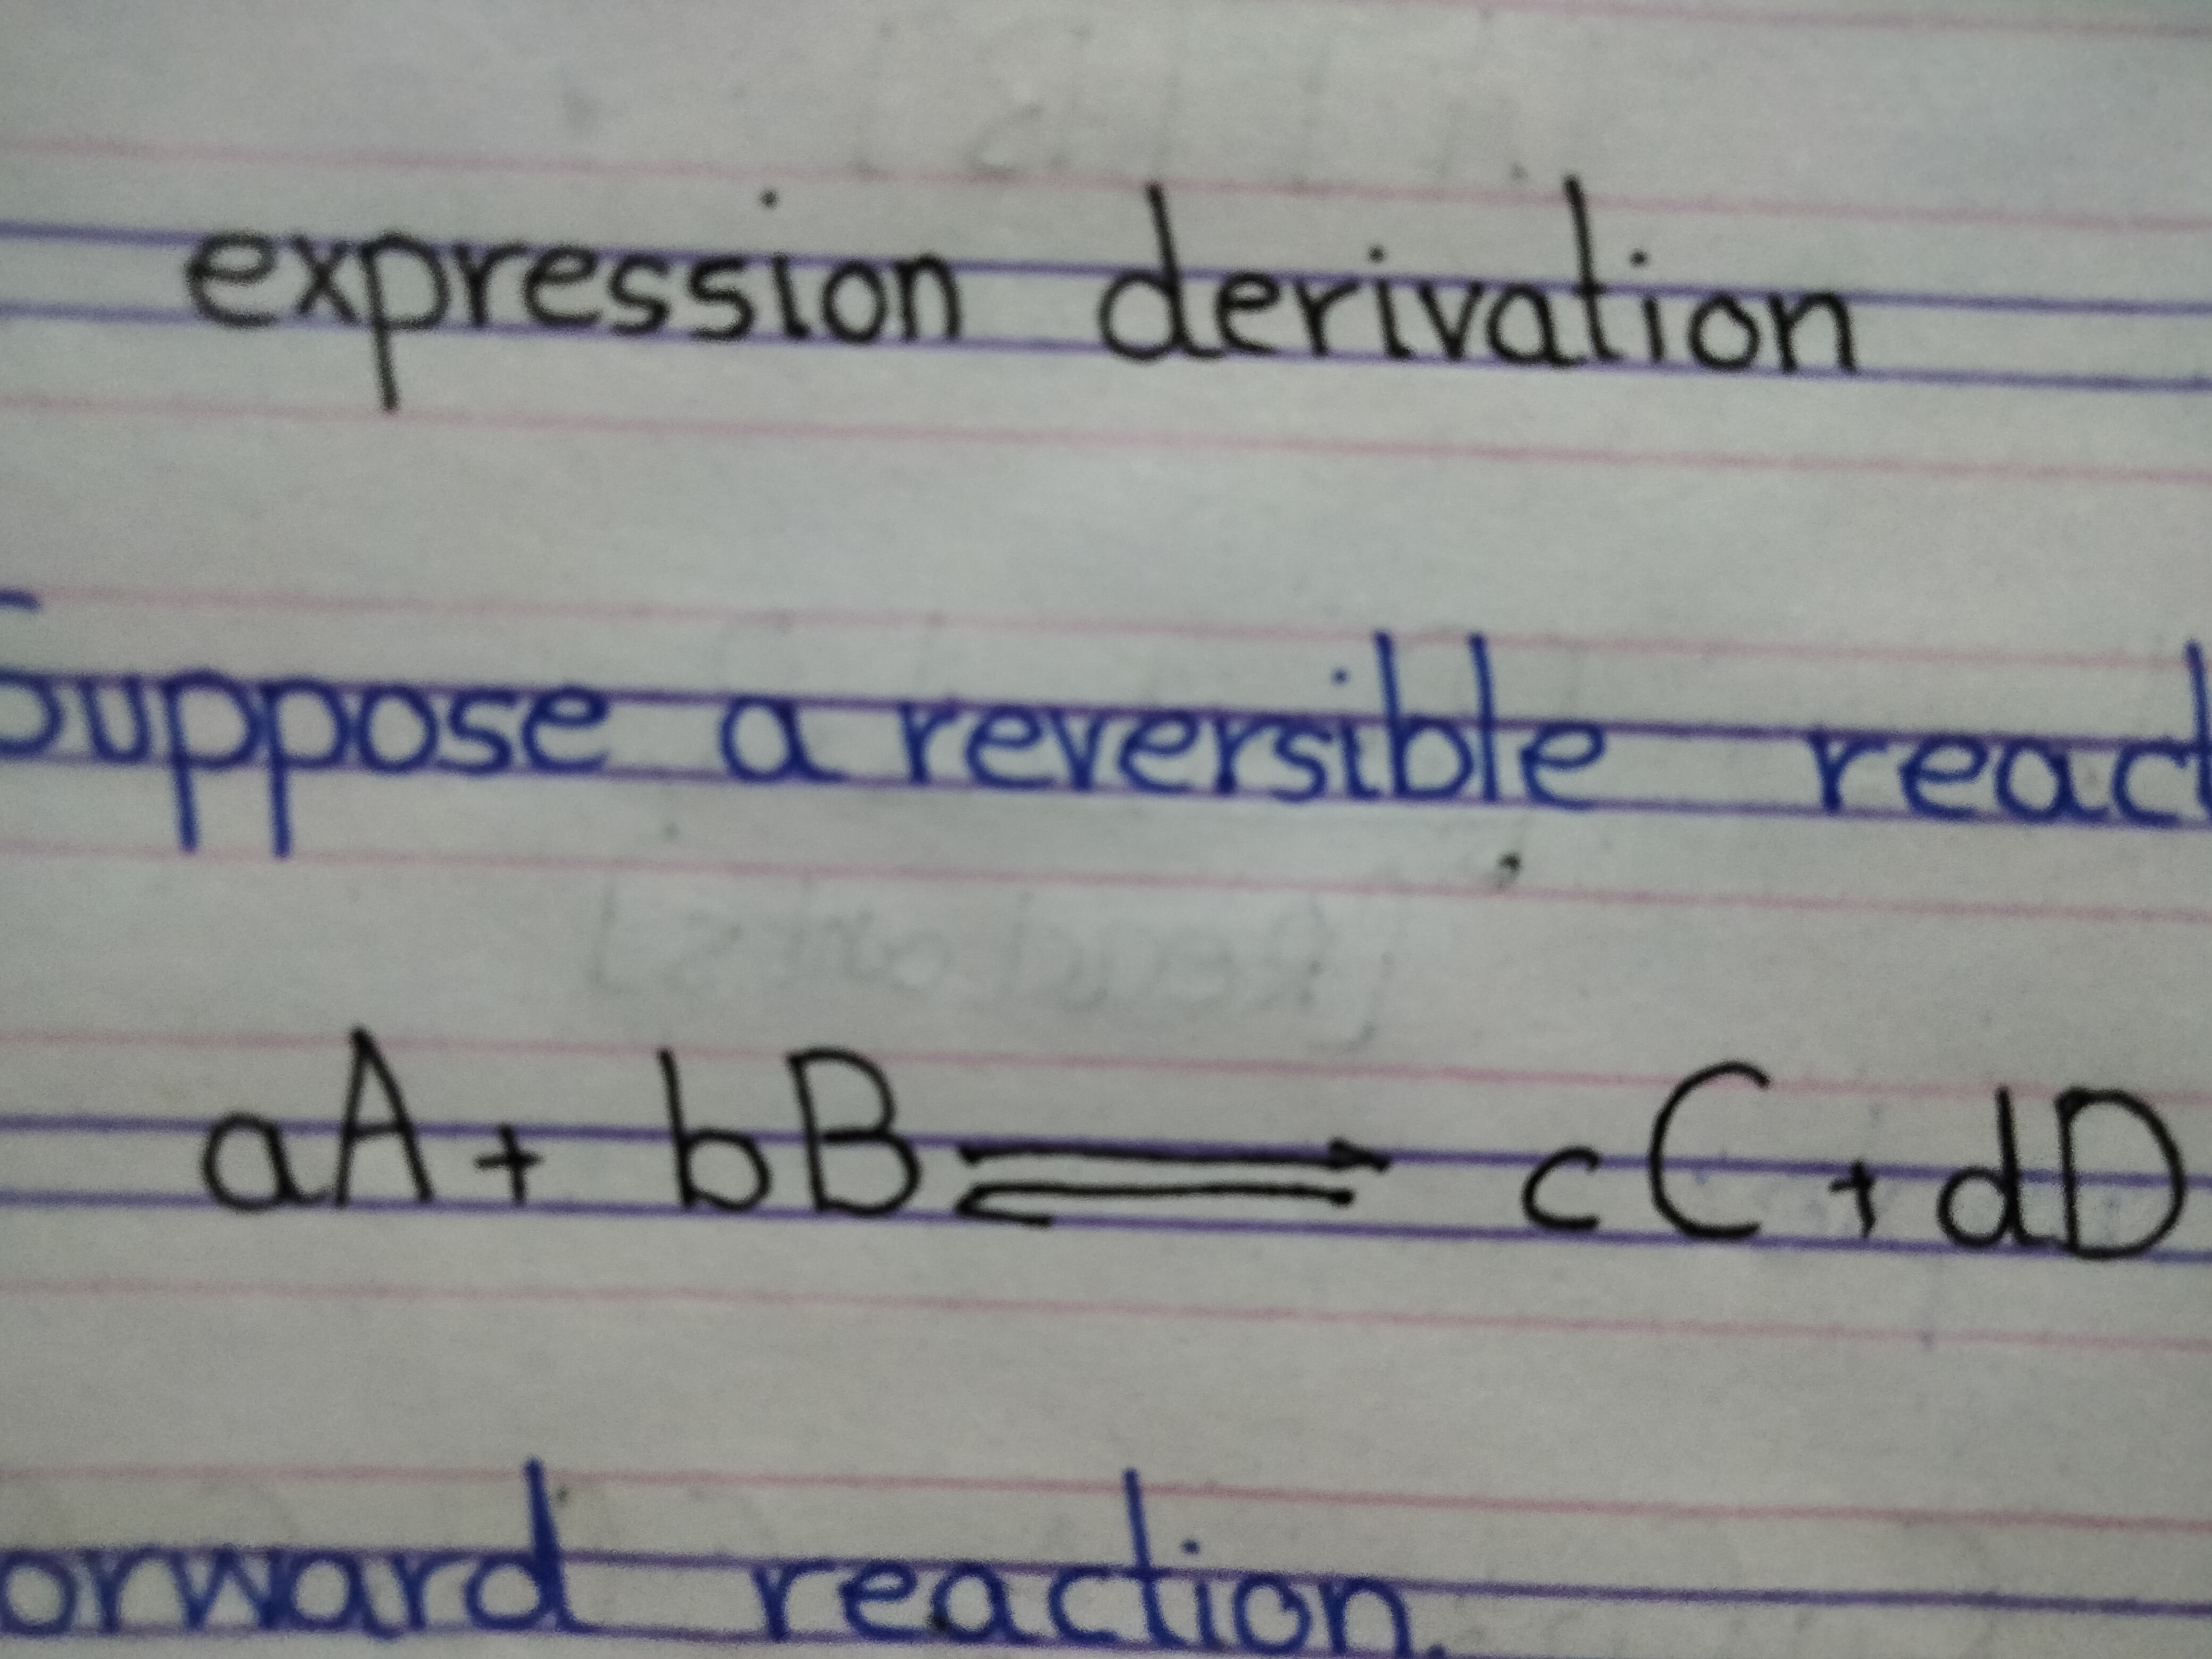 expression derivation
Suppose a reversible react
aA + bB ⇌ cC + dD
orward reaction.